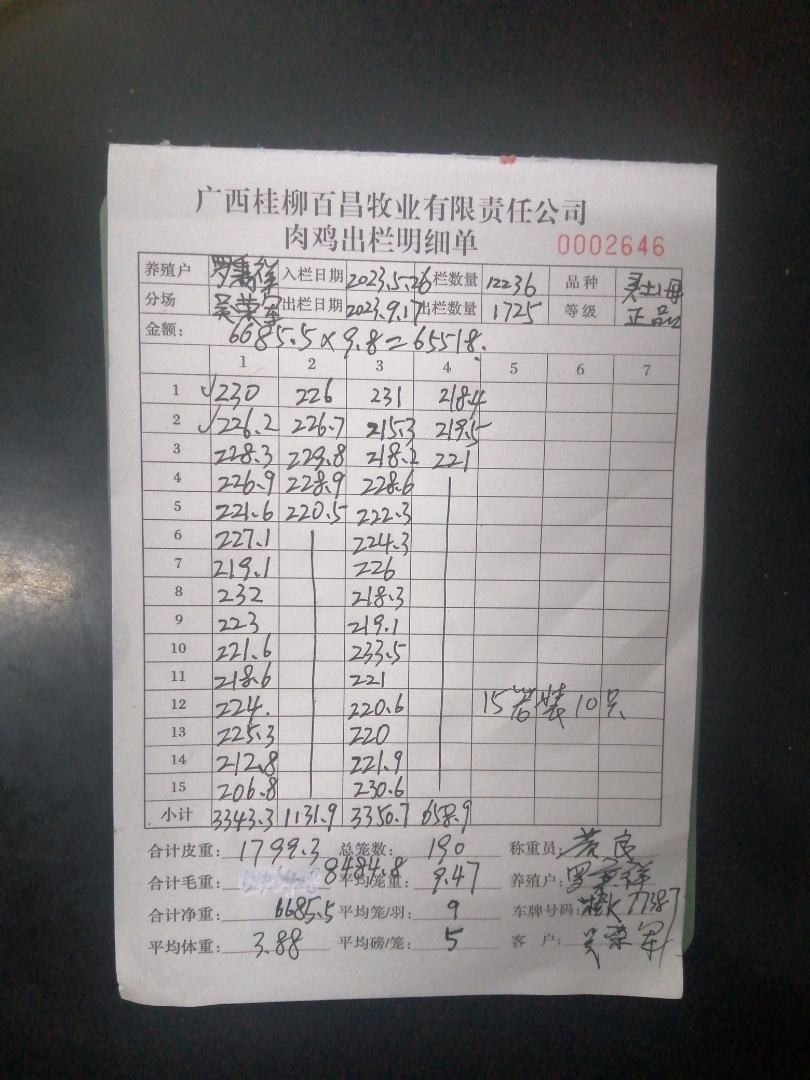 广西桂柳百昌牧业有限责任公司
肉鸡出栏明细单 0002646
养殖户 罗秉祥 入栏日期 2023.5.26 栏数量 12236 品种 土母
分场 吴荣军 出栏日期 2023.9.17 出栏数量 1725 等级 正品
金额: 6685.5×9.8=65518.
1 2 3 4 5 6 7
1 √230 226 231 218.4
2 √226.2 226.7 215.3 219.5
3 228.3 229.8 218.2 221
4 226.9 228.9 228.6
5 221.6 220.5 222.3
6 227.1 224.3
7 219.1 226
8 232 218.3
9 223 219.1
10 221.6 233.5
11 218.6 221
12 224. 220.6 15笼装10只
13 225.3 220
14 212.8 221.9
15 206.8 230.6
小计 3343.3 1131.9 3350.7 658.9
合计皮重: 1799.3 总笼数: 190 称重员: 黄良
合计毛重: 8484.8 平均笼重: 9.47 养殖户: 罗秉祥
合计净重: 6685.5 平均笼/羽: 9 车牌号码: 桂K77387
平均体重: 3.88 平均磅/笼: 5 客 户: 吴荣军